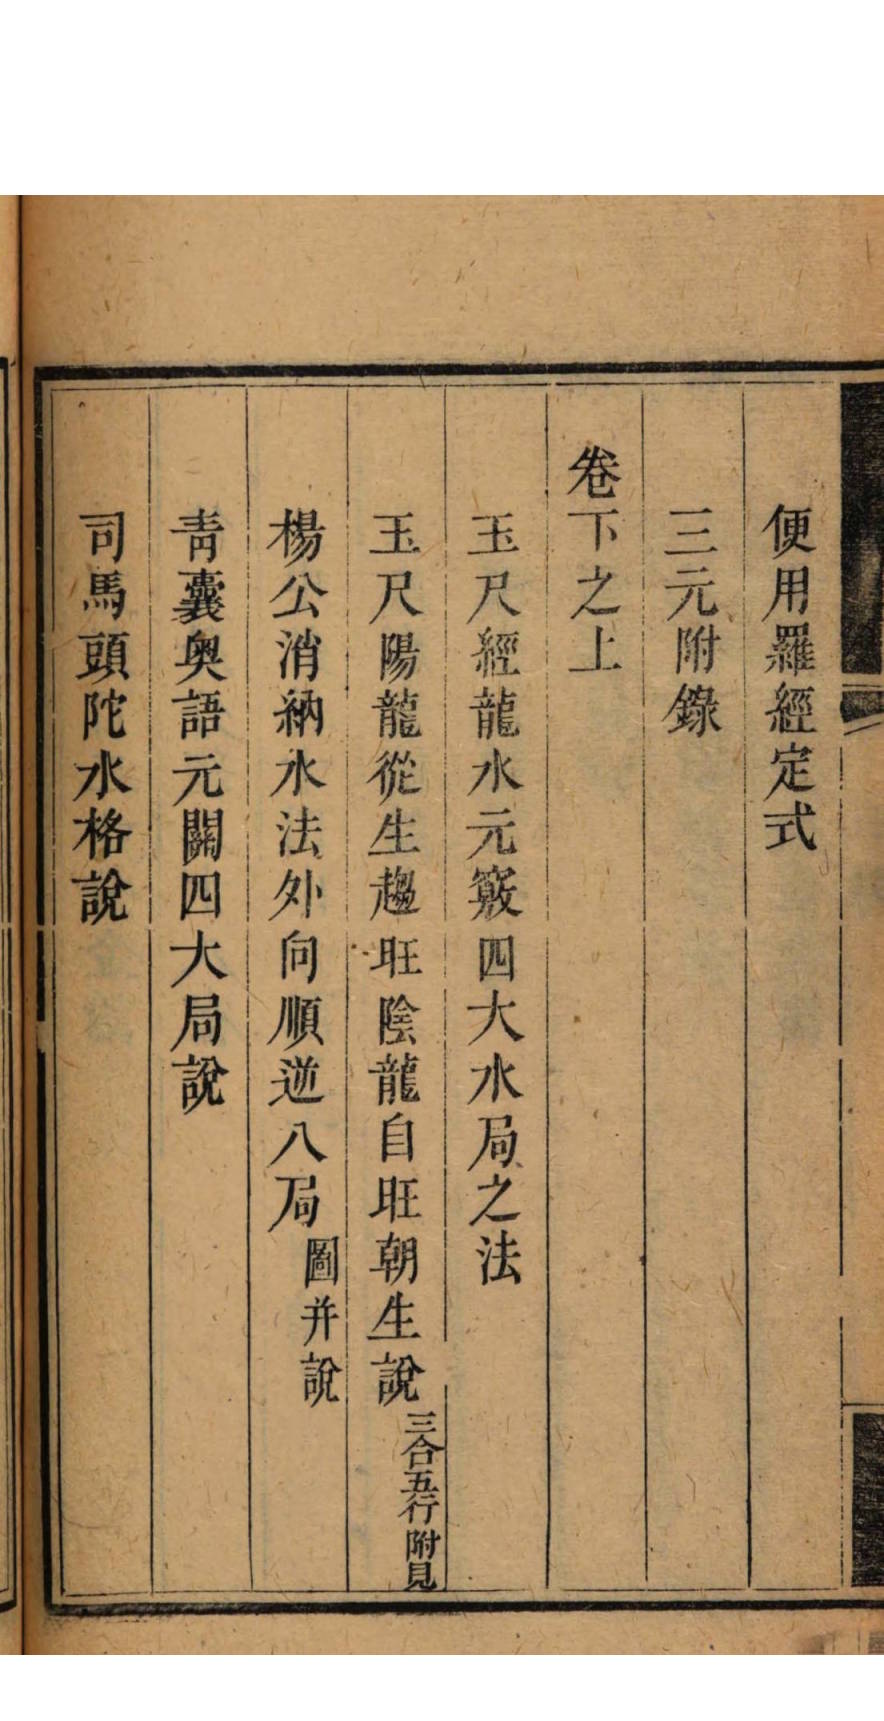 便用羅經定式
三元附錄
卷下之上
玉尺經龍水元竅四大水局之法
玉尺陽龍從生趨旺陰龍自旺朝生說三合五行附見
楊公消納水法外向順逆八局圖并說
靑囊奥語元關四大局說
司馬頭陀水格說